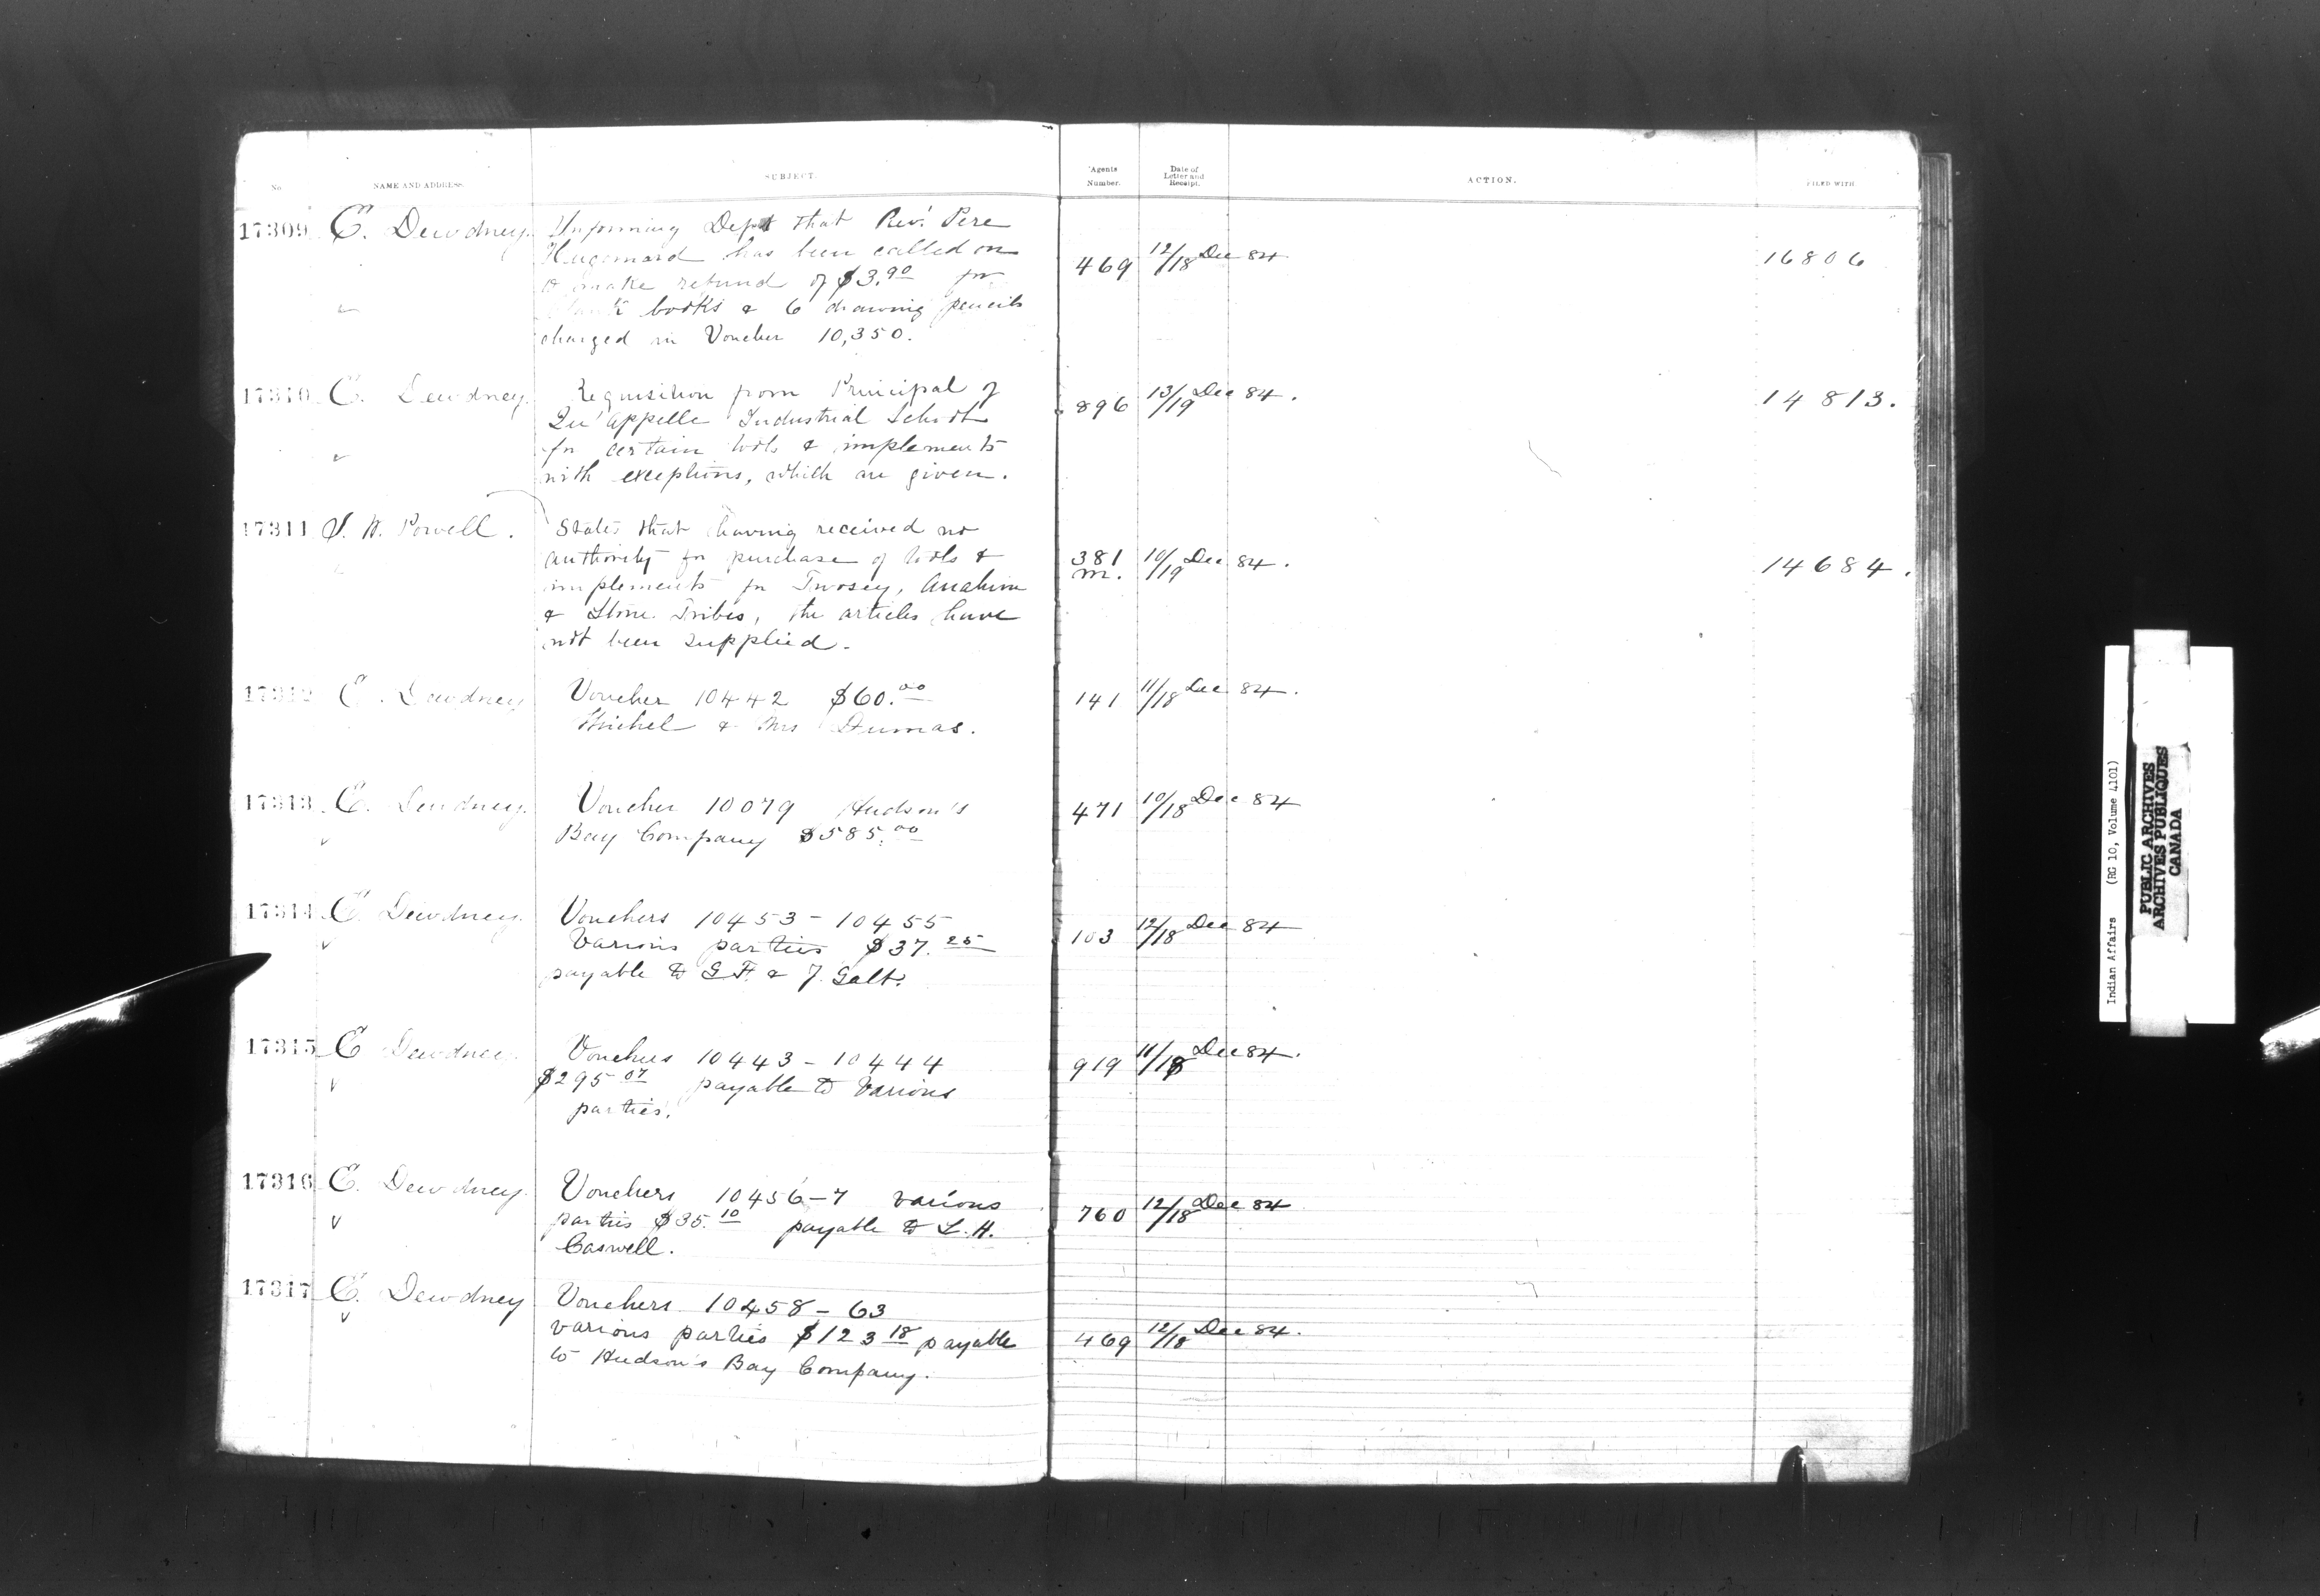 No. NAME AND ADDRESS. SUBJECT. Agents Number. Date of Letter and Receipt. ACTION. FILED WITH
17309 E. Dewdney. Informing Dept that Revd. Pere
Hugonnard has been called on
to make refund of $3.90 for
blank books & 6 drawing pencils
charged in Voucher 10,350.
469 12/18 Dec 84 16806
17310 E. Dewdney. Requisition from Principal of
Qu'Appelle Industrial School
for certain tools & implements
with exceptions, which are given.
896 13/19 Dec 84. 14813.
17311 I. W. Powell. States that having received no
authority for purchase of tools &
implements for Anahim
& Stone Tribes, the articles have
not been supplied.
381 m. 10/19 Dec 84. 14684.
17312 E. Dewdney Voucher 10442 $60.00
Michel & Mrs Dumas.
141 11/18 Dec 84.
17313 E. Dewdney. Voucher 10079 Hudson's
Bay Company $585.00
471 10/18 Dec 84
17314 E. Dewdney. Vouchers 10453 - 10455
Various parties $37.25
payable to G.F. & J. Galt.
103 12/18 Dec 84
17315 E Dewdney. Vouchers 10443 - 10444
$295 07 payable to Various
parties.
919 11/18 Dec 84.
17316 E. Dewdney. Vouchers 10456-7 various
parties $35.10 payable to L. H.
Caswell.
760 12/18 Dec 84
17317 E. Dewdney Vouchers 10458 - 63
various parties $123 18 payable
to Hudson's Bay Company.
469 12/18 Dec 84.
Indian Affairs (RG 10, Volume 4101)
PUBLIC ARCHIVES
ARCHIVES PUBLIQUES
CANADA